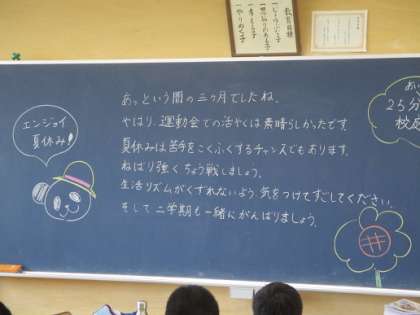 教育目標
エンジョイ
夏休み!
あっという間の三ヶ月でしたね。
やはり、運動会での活やくは素晴らしかったです。
夏休みは苦手をこくふくするチャンスでもあります。
ねばり強くちょう戦しましょう。
生活リズムがくずれないよう、気をつけてすごしてください。
そして二学期も一緒にがんばりましょう。
25分